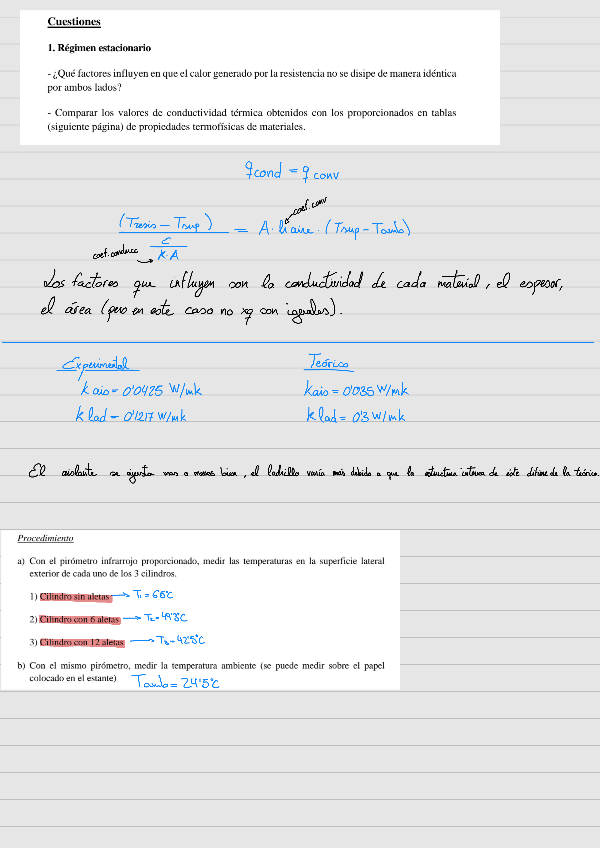 Cuestiones
1. Régimen estacionario
- ¿Qué factores influyen en que el calor generado por la resistencia no se disipe de manera idéntica
por ambos lados?
- Comparar los valores de conductividad térmica obtenidos con los proporcionados en tablas
(siguiente página) de propiedades termofísicas de materiales.
q cond = q conv
coef. conv
(Tresis - Tsup) / (e / K·A) = A · h aire · (Tsup - Tamb)
coef. conducc
Los factores que influyen son la conductividad de cada material, el espesor,
el área (pero en este caso no xq son iguales).
Experimental Teórico
k ais = 0'0425 W/mk Kais = 0'035 W/mk
k lad = 0'1217 W/mk k lad = 0'3 W/mk
El aislante se ajusta mas o menos bien, el ladrillo varía más debido a que la estructura interna de este difiere de la teórica.
Procedimiento
a) Con el pirómetro infrarrojo proporcionado, medir las temperaturas en la superficie lateral
exterior de cada uno de los 3 cilindros.
1) Cilindro sin aletas → T₁ = 66°C
2) Cilindro con 6 aletas → T₂ = 49'3°C
3) Cilindro con 12 aletas → T₃ = 42'5°C
b) Con el mismo pirómetro, medir la temperatura ambiente (se puede medir sobre el papel
colocado en el estante) Tamb = 24'5°C